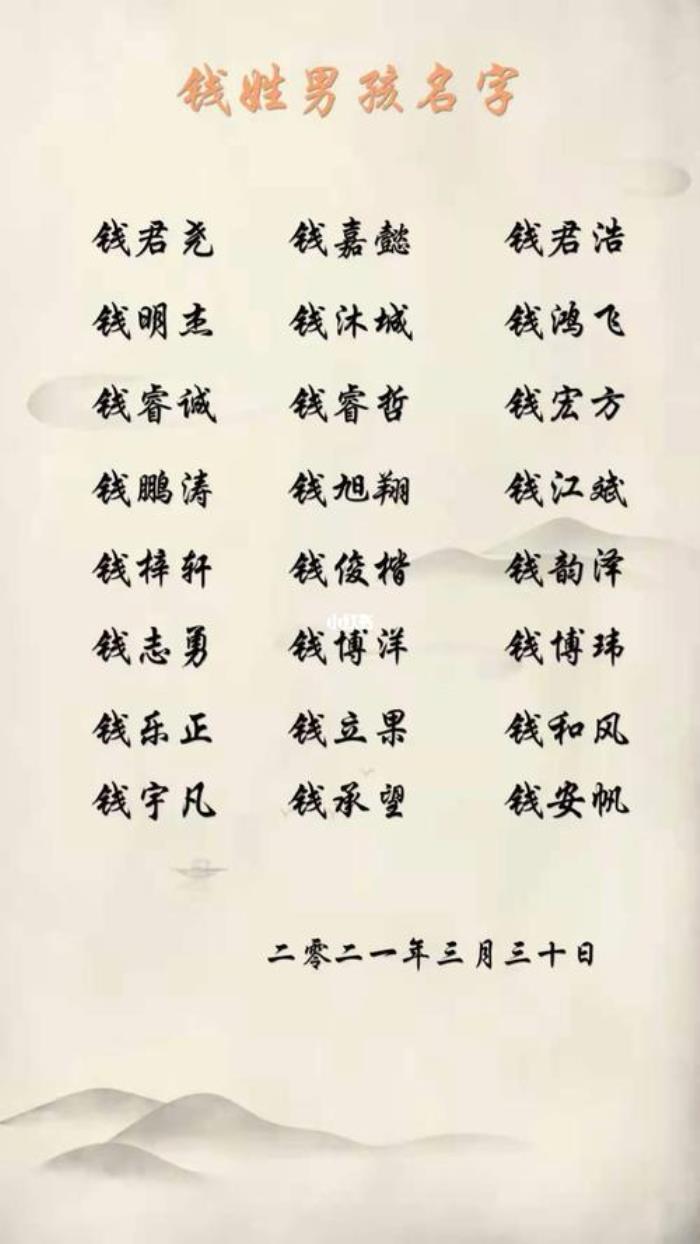 钱姓男孩名字
钱君尧 钱嘉懿 钱君浩
钱明杰 钱沐城 钱鸿飞
钱睿诚 钱睿哲 钱宏方
钱鹏涛 钱旭翔 钱江斌
钱梓轩 钱俊楷 钱韵泽
钱志勇 钱博洋 钱博玮
钱乐正 钱立果 钱和风
钱宇凡 钱承望 钱安帆
二零二一年三月三十日